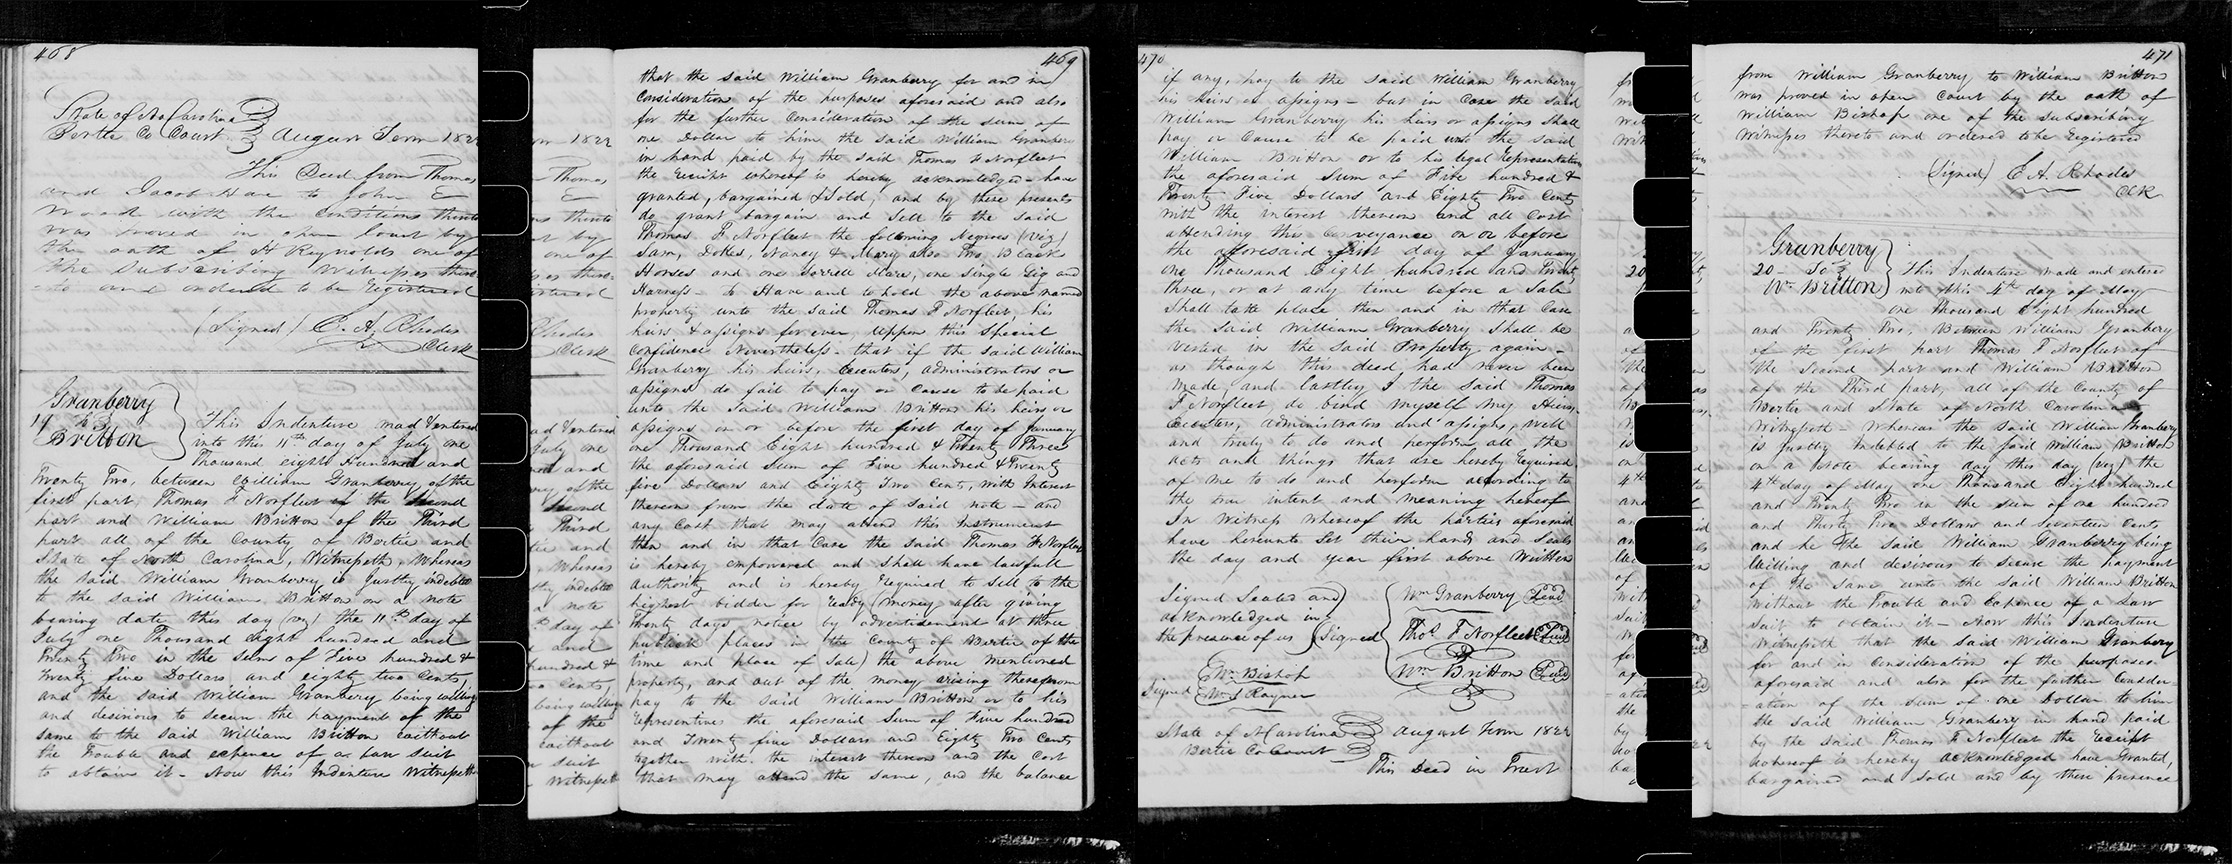 468
State of No Carolina
Bertie Co Court August Term 1822
This Deed from Thomas
and Jacob Hare to John E
Wood with the Conditions thereto
was proved in open Court by
the oath of H Reynolds one of
the Subscribing Witnesses there
to and ordered to be Registered
(Signed) E. A. Rhodes
Clerk
Granberry
19 To
Britton
This Indenture mad & entered
into this 11th day of July one
Thousand eight Hundred and
Twenty Two, between William Granberry of the
first part, Thomas F Norfleet of the second
part and William Britton of the Third
part all of the County of Bertie and
State of North Carolina, Witnesseth, Whereas
the said William Granberry is Justly indebted
to the said William Britton on a note
bearing date this day (viz) the 11th day of
July one Thousand Eight hundred and
Twenty Two in the sum of Five hundred &
Twenty five Dollars and eighty two Cents,
and the said William Granberry being willing
and desirious to secure the payment of the
same to the said William Britton without
the Trouble and expence of a Law suit
to obtain it - Now this Indenture Witnesseth
469
that the said William Granberry for and in
Consideration of the purposes aforesaid and also
for the further Consideration of the sum of
one Dollar to him the said William Granberry
in hand paid by the said Thomas F Norfleet
the Receipt whereof is hereby acknowledged - have
granted, bargained & Sold, and by these presents
do grant bargain and Sell to the said
Thomas F Norfleet the following Negroes (viz)
Sam, Dokes, Nancy & Mary also Two Black
Horses and one Sorrell Mare, one Single Gig and
Harness - To Have and to hold the above named
property unto the said Thomas F Norfleet, his
heirs & assigns for ever, Uppon this Special
Confidence Nevertheless - that if the said William
Granberry his heirs, Executors, administrators or
assigns do fail to pay or Cause to be paid
unto the said William Britton his heirs or
assigns on or before the first day of January
one Thousand Eight hundred & Twenty Three
the aforesaid Sum of Five hundred & Twenty
five Dollars and Eighty Two Cents, with Interest
thereon from the date of said note - and
any Cost that may attend this Instrument
then and in that Case the said Thomas F Norfleet
is hereby empowered and shall have lawfull
authority and is hereby Required to Sell to the
highest bidder for ready (money after giving
Twenty days notice by advertisement at three
publick places in the County of Bertie of the
time and place of Sale) the above mentioned
property, and out of the money arising therefrom
pay to the said William Britton or to his
representives the aforesaid Sum of Five hundred
and Twenty five Dollars and Eighty Two Cents
together with the interest thereon and the Cost
that may attend the same, and the balance
470
if any, pay to the said William Granberry
his heirs or assigns - but in Case the said
William Granberry his heirs or assigns Shall
pay or Cause to be paid unto the said
William Britton or to his legal Representatives
the aforesaid Sum of Five hundred &
Twenty Five Dollars and Eighty Two Cents
with the interest thereon and all Cost
attending this Conveyance on or before
the aforesaid first day of January
one Thousand Eight hundred and Twenty
three, or at any time before a Sale
Shall take place then and in that Case
the Said William Granberry Shall be
vested in the said Property again -
as though this deed had never been
made, and lastley I the said Thomas
F Norfleet, do bind myself My Heirs,
Executors, Administrators and assigns, well
and truly to do and perform all the
acts and things that are hereby Required
of me to do and perform according to
the true intent and meaning hereof
In Witness Whereof the parties aforesaid
have hereunto Set their hands and Seals
the day and year first above Written
Signed Sealed and
acknowledged in
the presence of us (Signed
Wm Granberry Seal
Thos F Norfleet Seal
Wm Britton Seal
Wm Bishop
Signed Wm S Rayner
State of No Carolina August Term 1822
Bertie Co Court
This Deed in Trust
471
from William Granberry to William Britton
was proved in open Court by the oath of
William Bishop one of the subscribing
Witnesses thereto and ordered to be Registered
(Signed) E. A. Rhodes
Clk
Granberry
20 - To
Wm Britton
This Indenture made and entered
into this 4th day of May
one Thousand Eight hundred
and Twenty Two, Between William Granberry
of the first part Thomas F Norfleet of
the Second part and William Britton
of the Third part, all of the County of
Bertie and State of North Carolina
Witnesseth - Whereas the said William Granberry
is justly Indebted to the said William Britton
on a Note bearing day this day (viz) the
4th day of May one Thousand Eight hundred
and Twenty Two in the sum of one hundred
and Thirty Two Dollars and Seventeen Cents
and he the said William Granberry being
Willing and desirous to Secure the payment
of the same unto the said William Britton
Without the Trouble and Expence of a Law
Suit to obtain it - Now this Indenture
Witnesseth that the said William Granberry
for and in Consideration of the purposes
aforesaid and also for the further Consider-
-ation of the sum of one Dollar to him
the said William Granberry in hand paid
by the said Thomas F Norfleet the Receipt
whereof is hereby acknowledged have Granted,
bargained and sold and by these presence